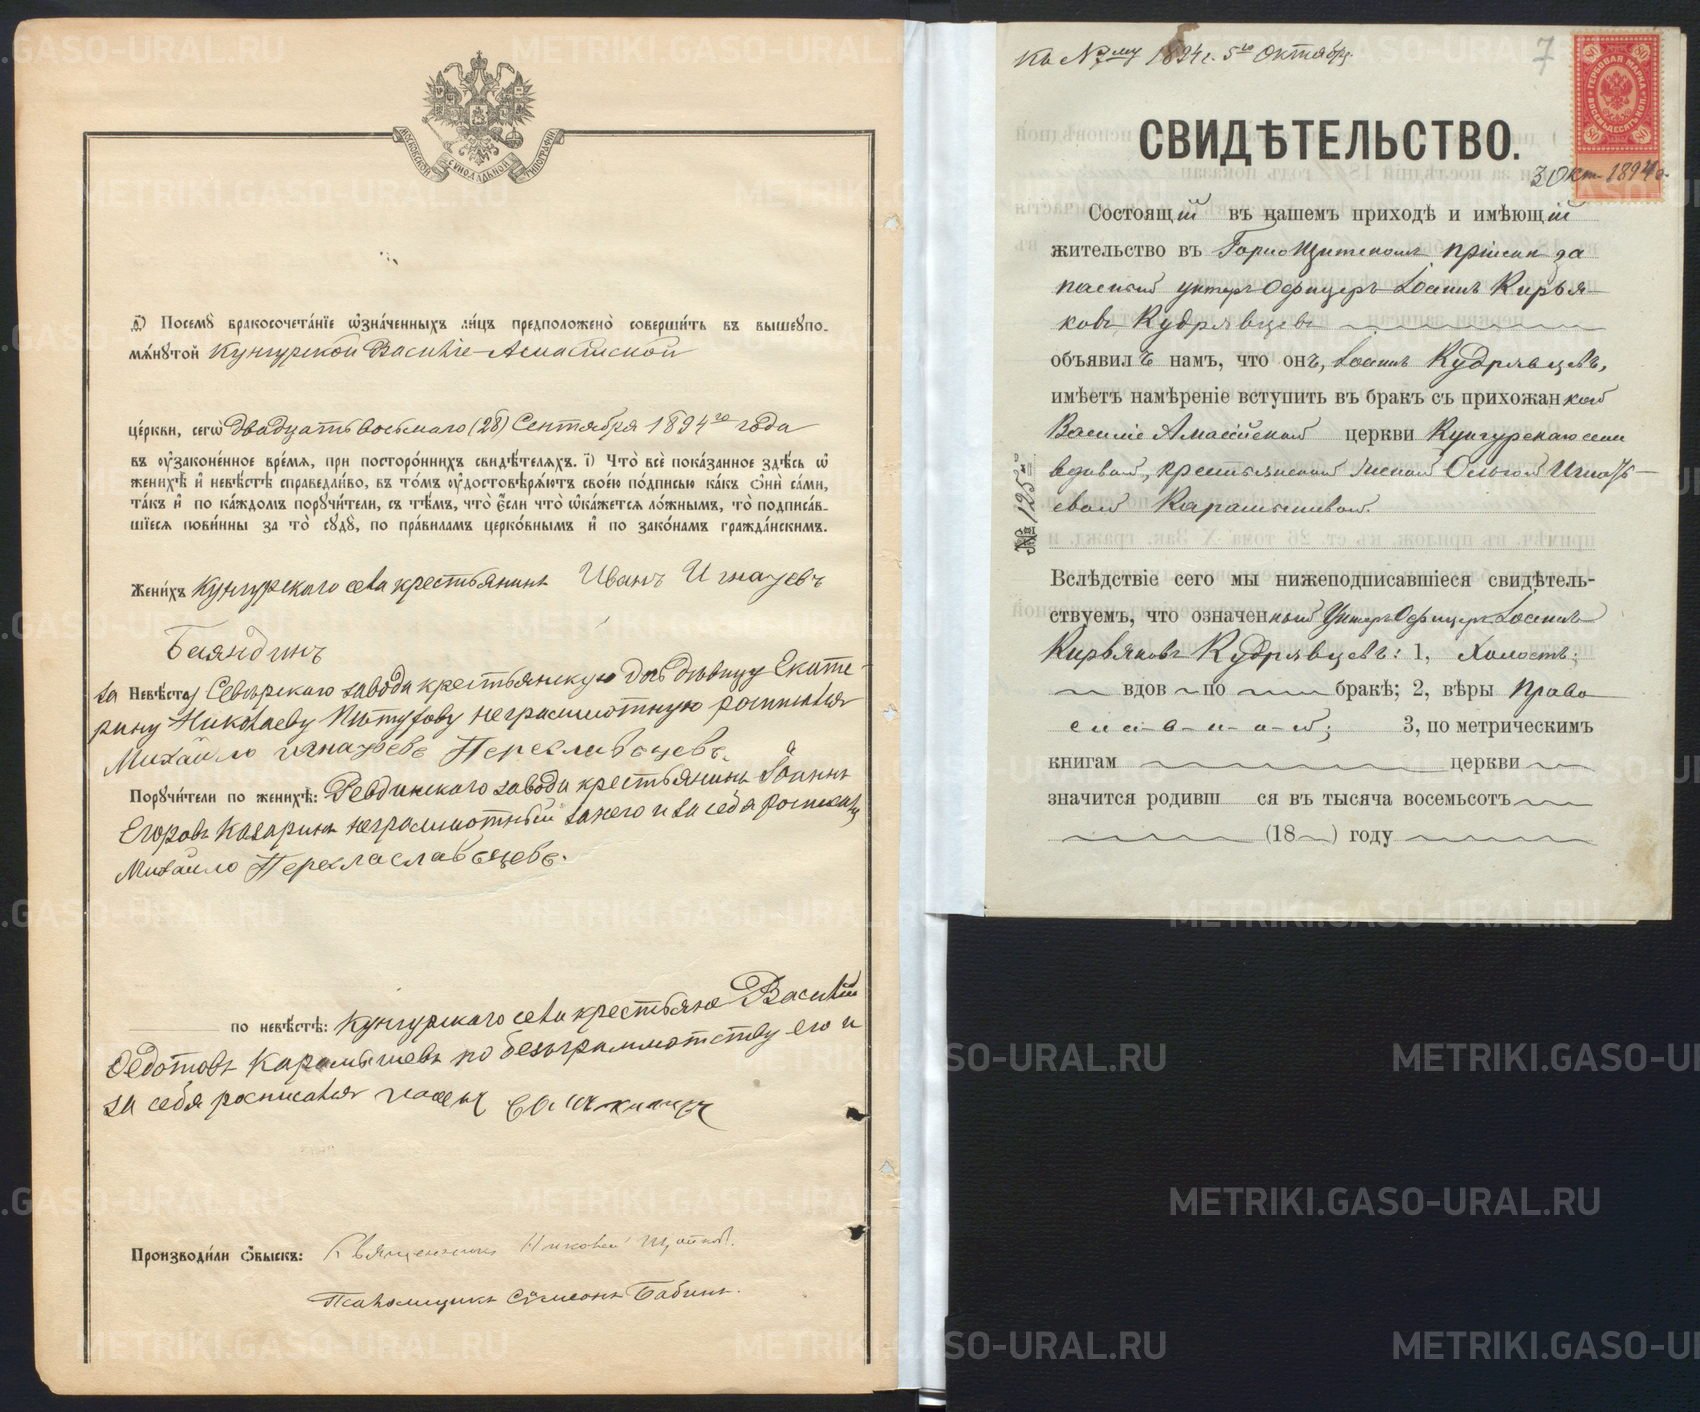 МОСКОВСКОЙ СѴНОДАЛЬНОЙ ТИПОГРАФІИ
Ѳ) Посемꙋ̀ бракосочета́нїе ѡ҆зна́ченныхъ ли́цъ предположено̀ соверши́ть въ вышеꙋпо-
мѧ́нꙋтой Кунгурской Василiе-Амасiйской
це́ркви, сегѡ̀ двадцать восьмаго (28) Сентября 1894го года
въ ᲂу҆зако́ненное вре́мѧ, при посторо́ннихъ свидѣ́телѧхъ. і҃) Что̀ всѐ пока́занное здѣ́сь ѡ҆
женихѣ̀ и҆ невѣ́стѣ справедли́во, въ то́мъ ᲂу҆достовѣрѧ́ютъ свое́ю по́дписью ка́къ ѻ҆нѝ са́ми,
та́къ и҆ по ка́ждомъ порꙋчи́тели, съ тѣ́мъ, что̀ є҆́сли что̀ ѡ҆ка́жетсѧ ло́жнымъ, то̀ подписа́в-
шїесѧ пови́нны за то̀ сꙋдꙋ̀, по пра́виламъ церко́внымъ и҆ по зако́намъ гражда́нскимъ.
Жени́хъ Кунгурского села крестьянинъ Иванъ Игнатьевъ
Баяндинъ
за Невѣ́ста Северского завода крестьянскую дочь девицу Екате-
рину Николаеву Пѣтухову неграммотную росписался
Михайло Игнатьевъ Переславцевъ.
Порꙋчи́тели по женихѣ̀: Ревдинского завода крестьянинъ Іоаннъ
Егоровъ Казаринъ неграммотный за него и за себя росписался
Михайло Переславцевъ.
по невѣ́стѣ: Кунгурского села крестьяне Василій
Федотовъ Карамышевъ по безграммотству его и
за себя росписался
Производи́ли ѻ҆́быскъ: Священникъ Николай
Псаломщикъ Симеонъ Бабинъ.
къ №7му 1894г. 5го Октября.
7
80 80
ГЕРБОВАЯ МАРКА
ВОСЕМЬДЕСЯТЪ КОП.
80 80
СВИДѢТЕЛЬСТВО.
3 Окт 1894 г.
Состоящій въ нашемъ приходѣ и имѣющій
жительство въ Горнощитскомъ пріиск за
пасный унтеръ Офицеръ Іоаннъ Кирья-
ковъ Кудрявцевъ
объявилъ намъ, что онъ, Іоаннъ Кудрявцевъ,
имѣетъ намѣреніе вступить въ бракъ съ прихожанкой
Василіе Амасійской церкви Кунгурскаго села
вдовой, крестьянской женой Ольгой Игнать-
евой Карамышевой
№ 125
Вслѣдствіе сего мы нижеподписавшіеся свидѣтель-
ствуемъ, что означенный Унтеръ Офицеръ Іоаннъ
Кирьяковъ Кудрявцевъ: 1, Холостъ;
вдов по бракѣ; 2, вѣры Право
славной; 3, по метрическимъ
книгам церкви
значится родивш ся въ тысяча восемьсотъ
(18 ) году